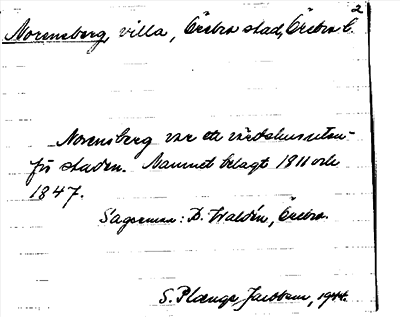 2
Norensberg, villa, Örebro stad, Örebro l.
Norensberg var ett värdshus utan-
för staden. Namnet belagt 1811 och
1847.
Sagesman: D. Waldén, Örebro.
S. Plænge Jacobson, 1944.